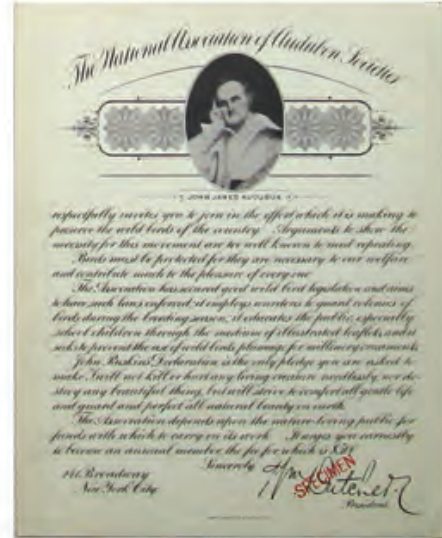 The National Association of Audubon Societies
JOHN JAMES AUDUBON
respectfully invites you to join in the effort which it is making to
preserve the wild birds of the country. Arguments to show the
necessity for this movement are too well known to need repeating.
Birds must be protected for they are necessary to our welfare
and contribute much to the pleasure of every one
The Association has secured good wild bird legislation and aims
to have such laws enforced; it employs wardens to guard colonies of
birds during the breeding season; it educates the public, especially
school children through the medium of illustrated leaflets, and it
seeks to prevent the use of wild birds plumage for millinery ornaments
John Ruskin's Declaration is the only pledge you are asked to
make I will not kill or hurt any living creature needlessly, nor de-
stroy any beautiful thing, but will strive to comfort all gentle life
and guard and perfect all natural beauty on earth.
The Association depends upon the nature-loving public for
funds with which to carry on its work. It urges you earnestly
to become an annual member the fee for which is
Sincerely
141 Broadway
New York City.
Wm Dutcher
SPECIMEN
President